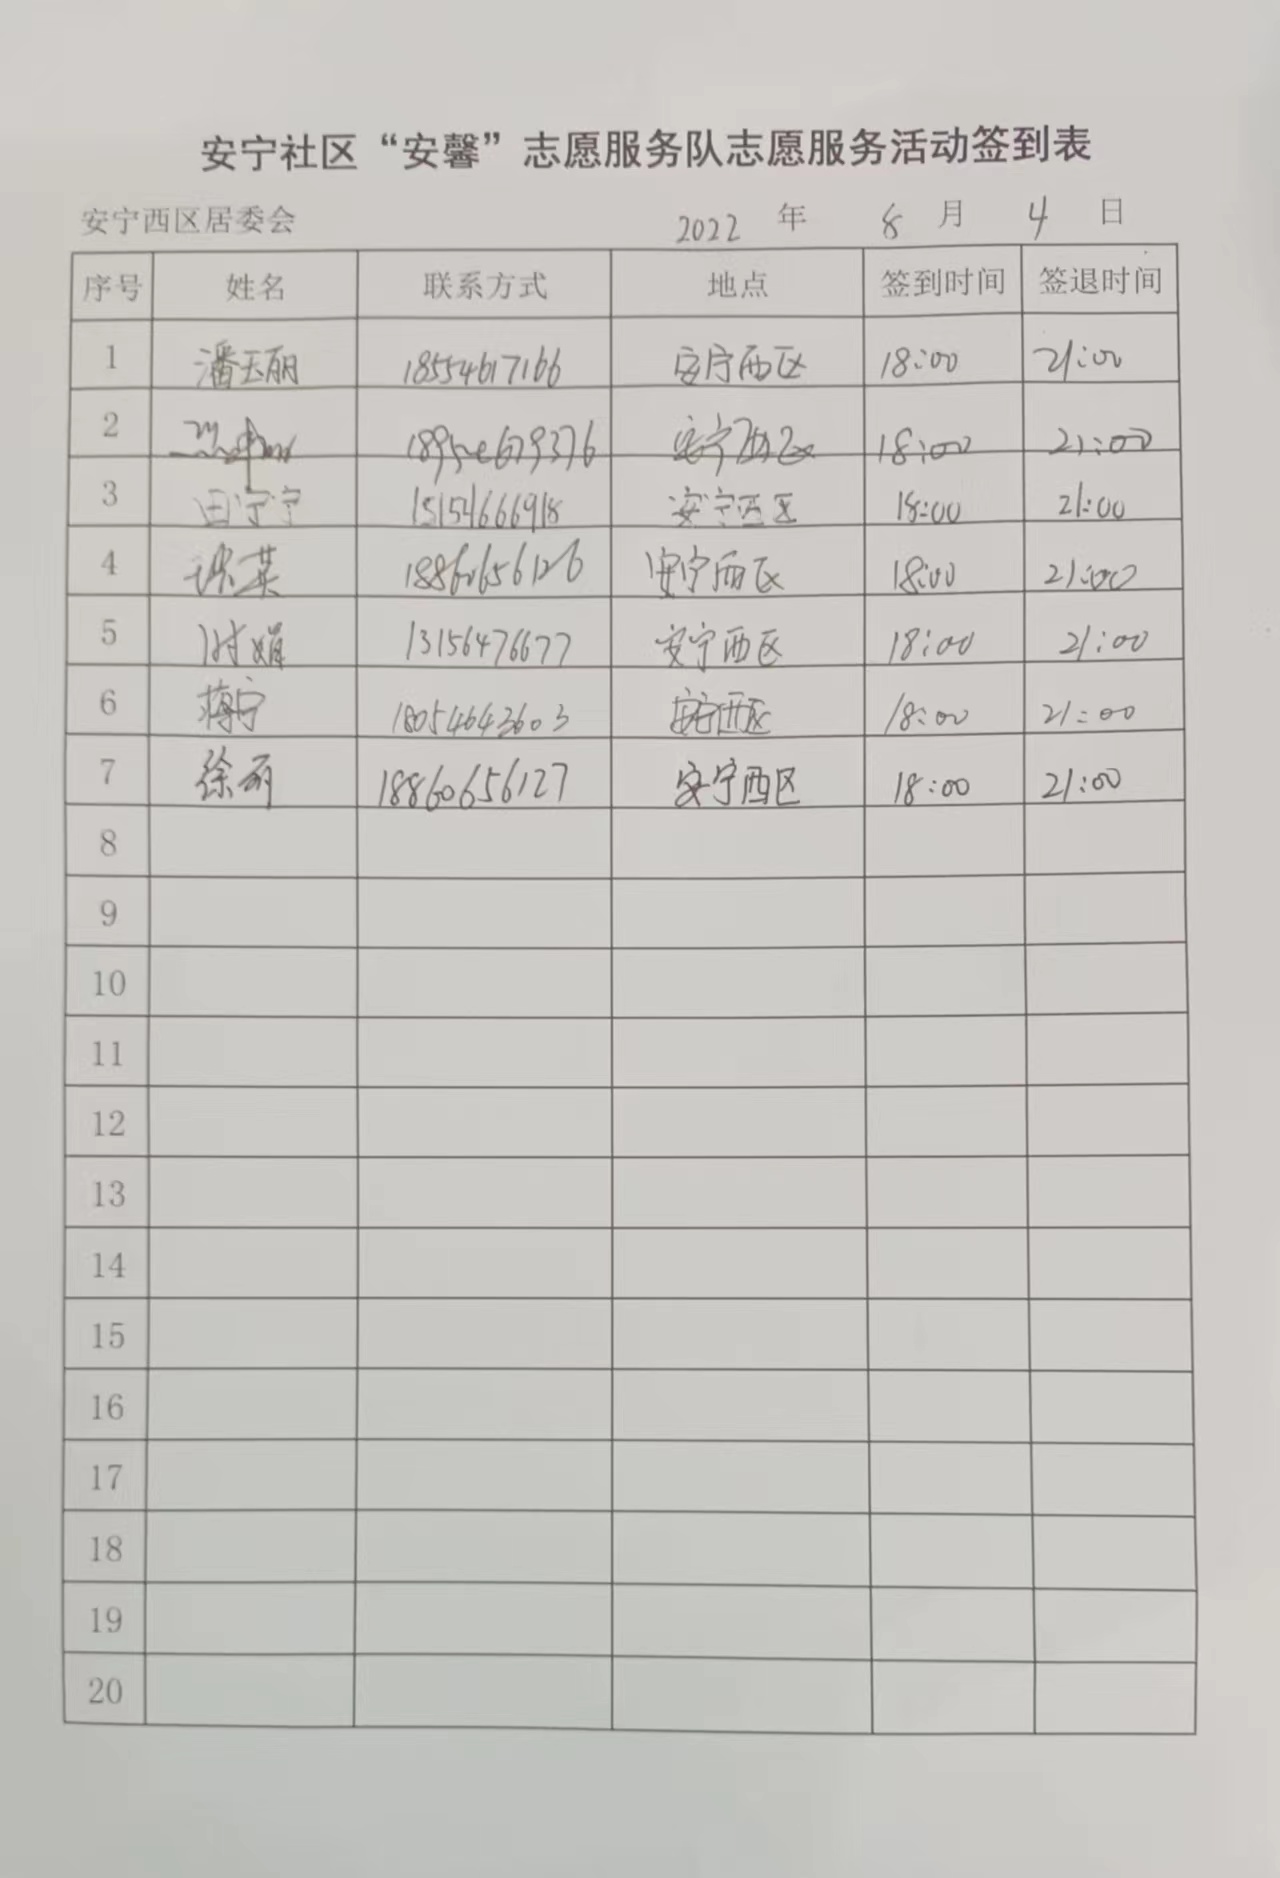 安宁社区“安馨”志愿服务队志愿服务活动签到表
安宁西区居委会 2022 年 8 月 4 日
序号 姓名 联系方式 地点 签到时间 签退时间
1 潘玉丽 18554617166 安宁西区 18:00 21:00
2 安宁西区 18:00 21:00
3 田宁宁 15154666918 安宁西区 18:00 21:00
4 18860656126 安宁西区 18:00 21:00
5 时娟 13156476677 安宁西区 18:00 21:00
6 18054643603 安宁西区 18:00 21:00
7 徐丽 18860656127 安宁西区 18:00 21:00
8
9
10
11
12
13
14
15
16
17
18
19
20